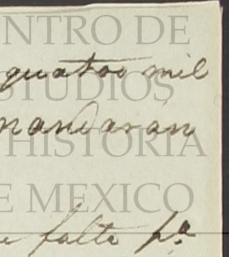 NTRO DE
quatro mil
STUDIOS
mandarán
HISTORIA
E MEXICO
e falta pa.